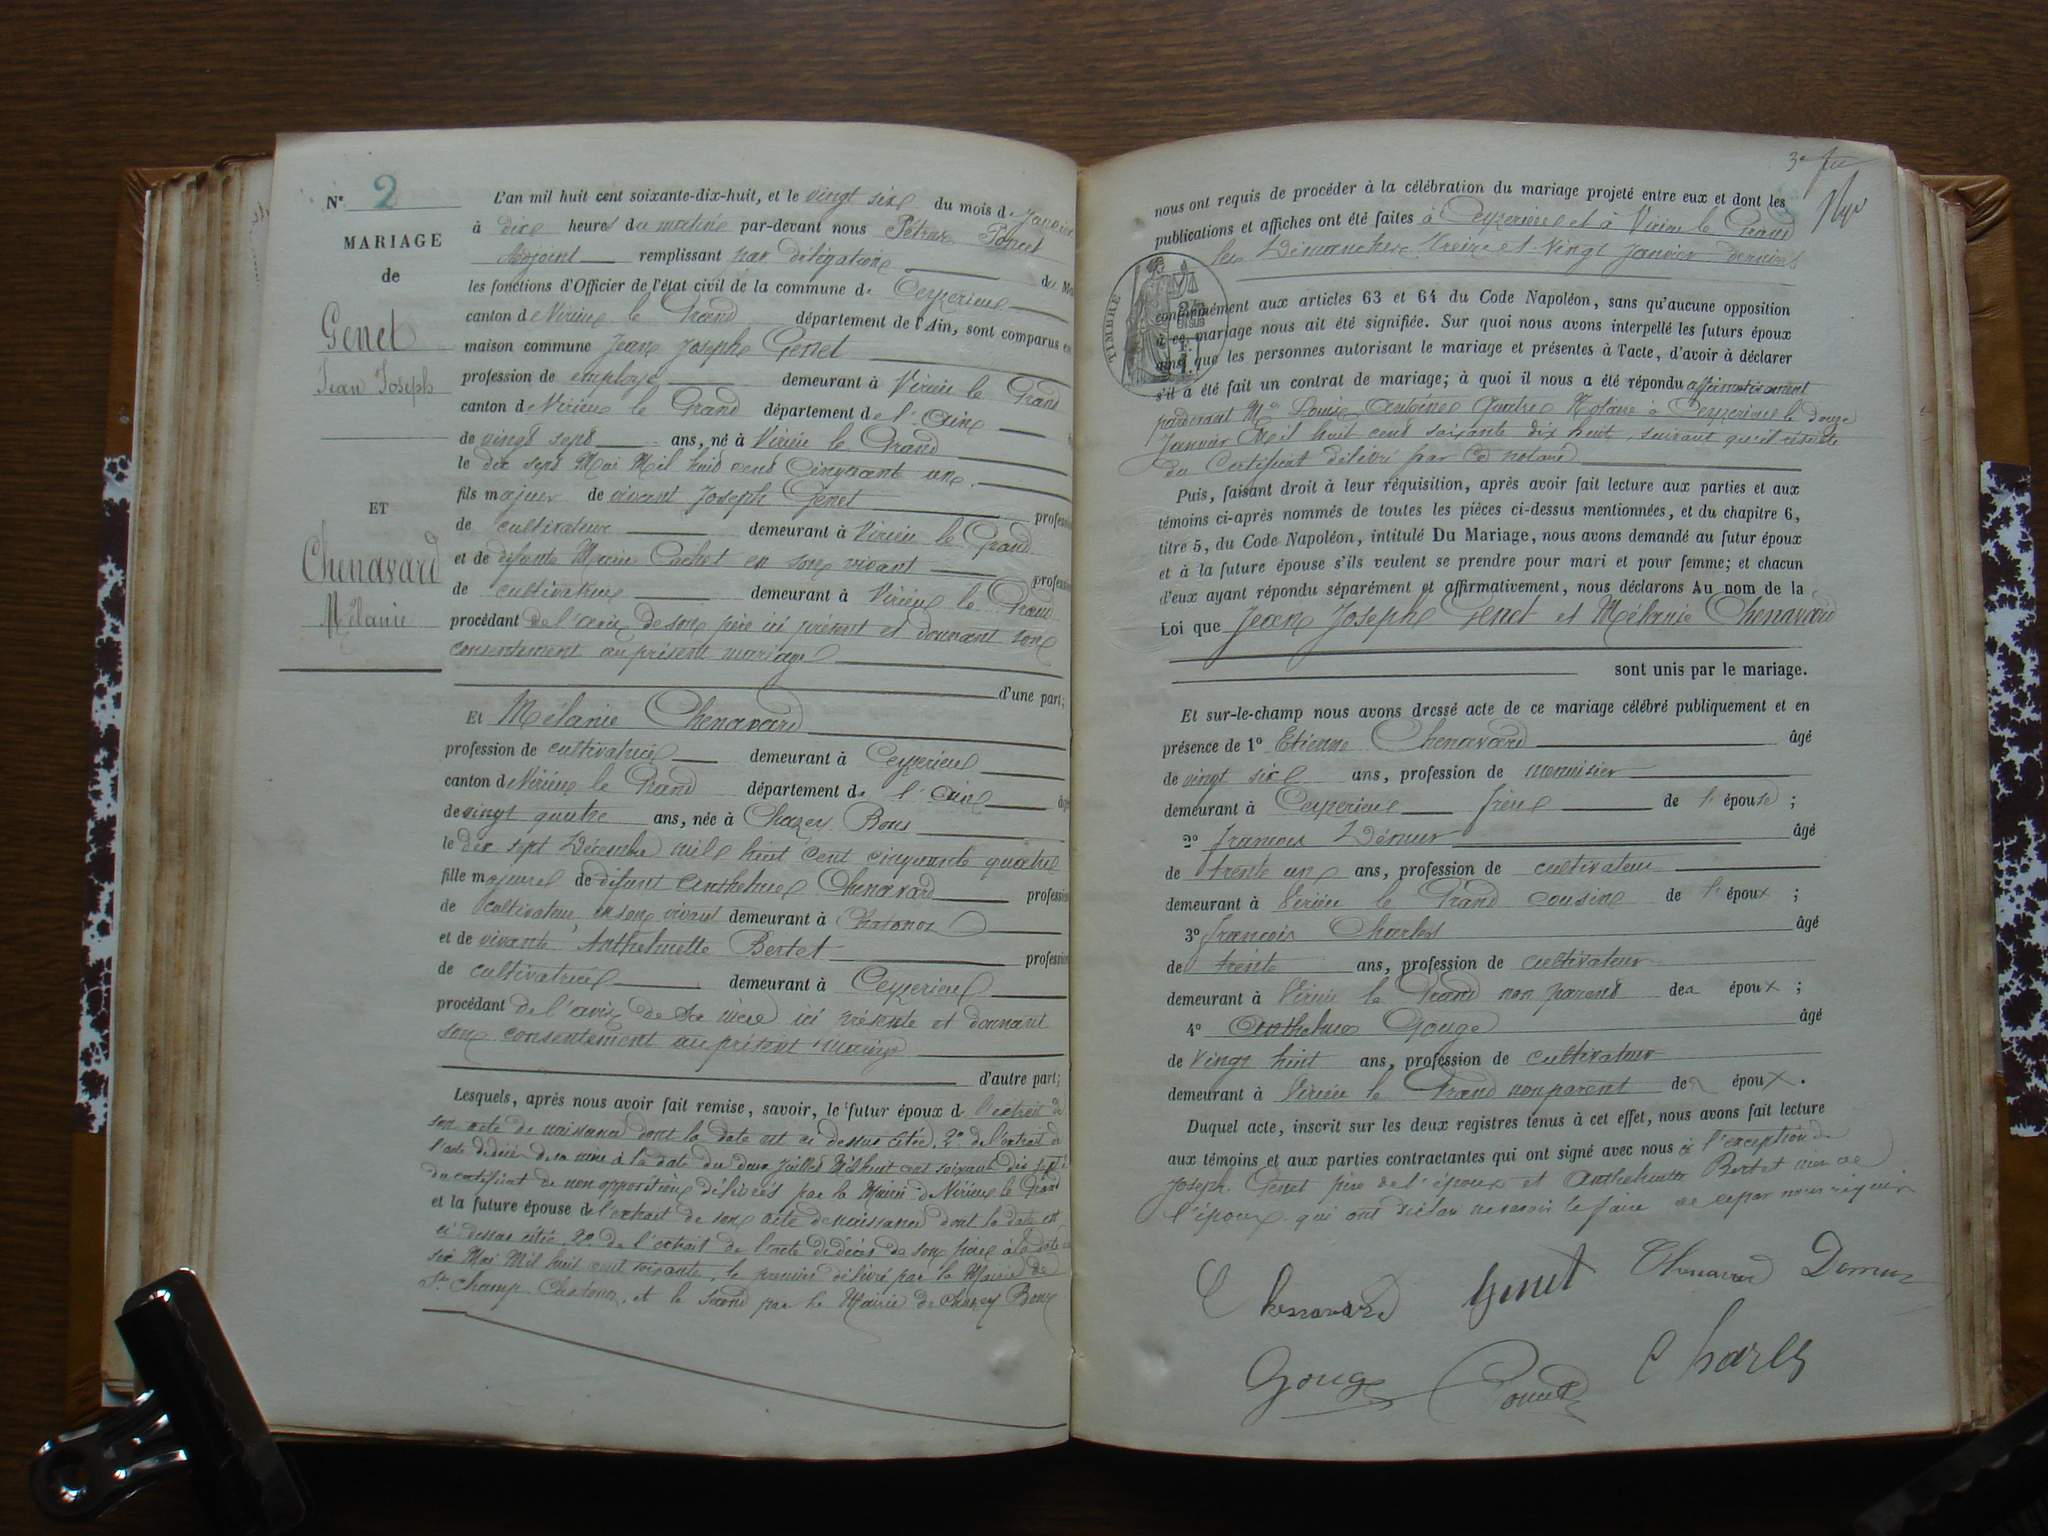 N° 2
MARIAGE
de
Genet
Jean Joseph
ET
Chenavard
Mélanie
L'an mil huit cent soixante-dix-huit, et le vingt six du mois de Janvier
à dix heures du matin par-devant nous Pétrus Poncet
Adjoint remplissant par délégation du
les fonctions d'Officier de l'état civil de la commune de Ceyzerieu
canton de Virieu le Grand département de l'Ain, sont comparus en
maison commune Jean Joseph Genet
profession de employé demeurant à Virieu le Grand
canton de Virieu le Grand département de l'Ain
de vingt sept ans, né à Virieu le Grand
le dix sept Mai Mil huit cent cinquante un
fils majeur de vivant Joseph Genet profession
de cultivateur demeurant à Virieu le Grand
et de défunte Marie Cochet en son vivant profession
de cultivatrice demeurant à Virieu le Grand
procédant de l'avis de son père ici présent et donnant son
consentement au présent mariage
d'une part;
Et Mélanie Chenavard
profession de cultivatrice demeurant à Ceyzerieu
canton de Virieu le Grand département de l'Ain âgé
de vingt quatre ans, née à Chazey Bons
le dix sept Décembre mil huit cent cinquante quatre
fille majeure de défunt Anthelme Chenavard profession
de cultivateur, en son vivant demeurant à Chatonod
et de vivante Anthelmette Bertet profession
de cultivatrice demeurant à Ceyzerieu
procédant de l'avis de sa mère ici présente et donnant
son consentement au présent mariage
d'autre part;
Lesquels, après nous avoir fait remise, savoir, le futur époux de l'extrait de
son acte de naissance dont la date est ci dessus citée, 2° de l'extrait de
l'acte de décès de sa mère à la date du deux Juillet Mil huit cent soixante dix sept
du certificat de non opposition délivrés par la Mairie de Virieu le Grand
et la future épouse de l'extrait de son acte de naissance dont la date est
ci dessus citée, 2° de l'extrait de l'acte de décès de son père à la date
six Mai Mil huit cent soixante, le premier délivré par la Mairie de
St Champ Chatonod, et le second par la Mairie de Chazey Bons
3e
nous ont requis de procéder à la célébration du mariage projeté entre eux et dont les
publications et affiches ont été faites à Ceyzerieu et à Virieu le Grand
les Dimanches treize et vingt Janvier derniers
TIMBRE
conformément aux articles 63 et 64 du Code Napoléon, sans qu'aucune opposition
à ce mariage nous ait été signifiée. Sur quoi nous avons interpellé les futurs époux
ainsi que les personnes autorisant le mariage et présentes à l'acte, d'avoir à déclarer
s'il a été fait un contrat de mariage; à quoi il nous a été répondu affirmativement
pardevant Me Louis Antoine Notaire à Ceyzerieu le douze
Janvier Mil huit cent soixante dix huit, suivant qu'il résulte
du Certificat délivré par ce notaire
Puis, faisant droit à leur réquisition, après avoir fait lecture aux parties et aux
témoins ci-après nommés de toutes les pièces ci-dessus mentionnées, et du chapitre 6,
titre 5, du Code Napoléon, intitulé Du Mariage, nous avons demandé au futur époux
et à la future épouse s'ils veulent se prendre pour mari et pour femme; et chacun
d'eux ayant répondu séparément et affirmativement, nous déclarons Au nom de la
Loi que Jean Joseph Genet et Mélanie Chenavard
sont unis par le mariage.
Et sur-le-champ nous avons dressé acte de ce mariage célébré publiquement et en
présence de 1° Etienne Chenavard âgé
de vingt six ans, profession de menuisier
demeurant à Ceyzerieu frère de l'épouse ;
2° françois Démur âgé
de trente un ans, profession de cultivateur
demeurant à Virieu le Grand cousin de l'époux ;
3° françois Charles âgé
de trente ans, profession de cultivateur
demeurant à Virieu le Grand non parent des époux ;
4° Anthelme Gouge âgé
de vingt huit ans, profession de cultivateur
demeurant à Virieu le Grand non parent des époux.
Duquel acte, inscrit sur les deux registres tenus à cet effet, nous avons fait lecture
aux témoins et aux parties contractantes qui ont signé avec nous à l'exception de
Joseph Genet père de l'époux et Anthelmette Bertet mère de
l'épouse qui ont déclaré ne savoir le faire de ce par nous requis
Chenavard Genet Chenavard Demur
Gouge Poncet Charles